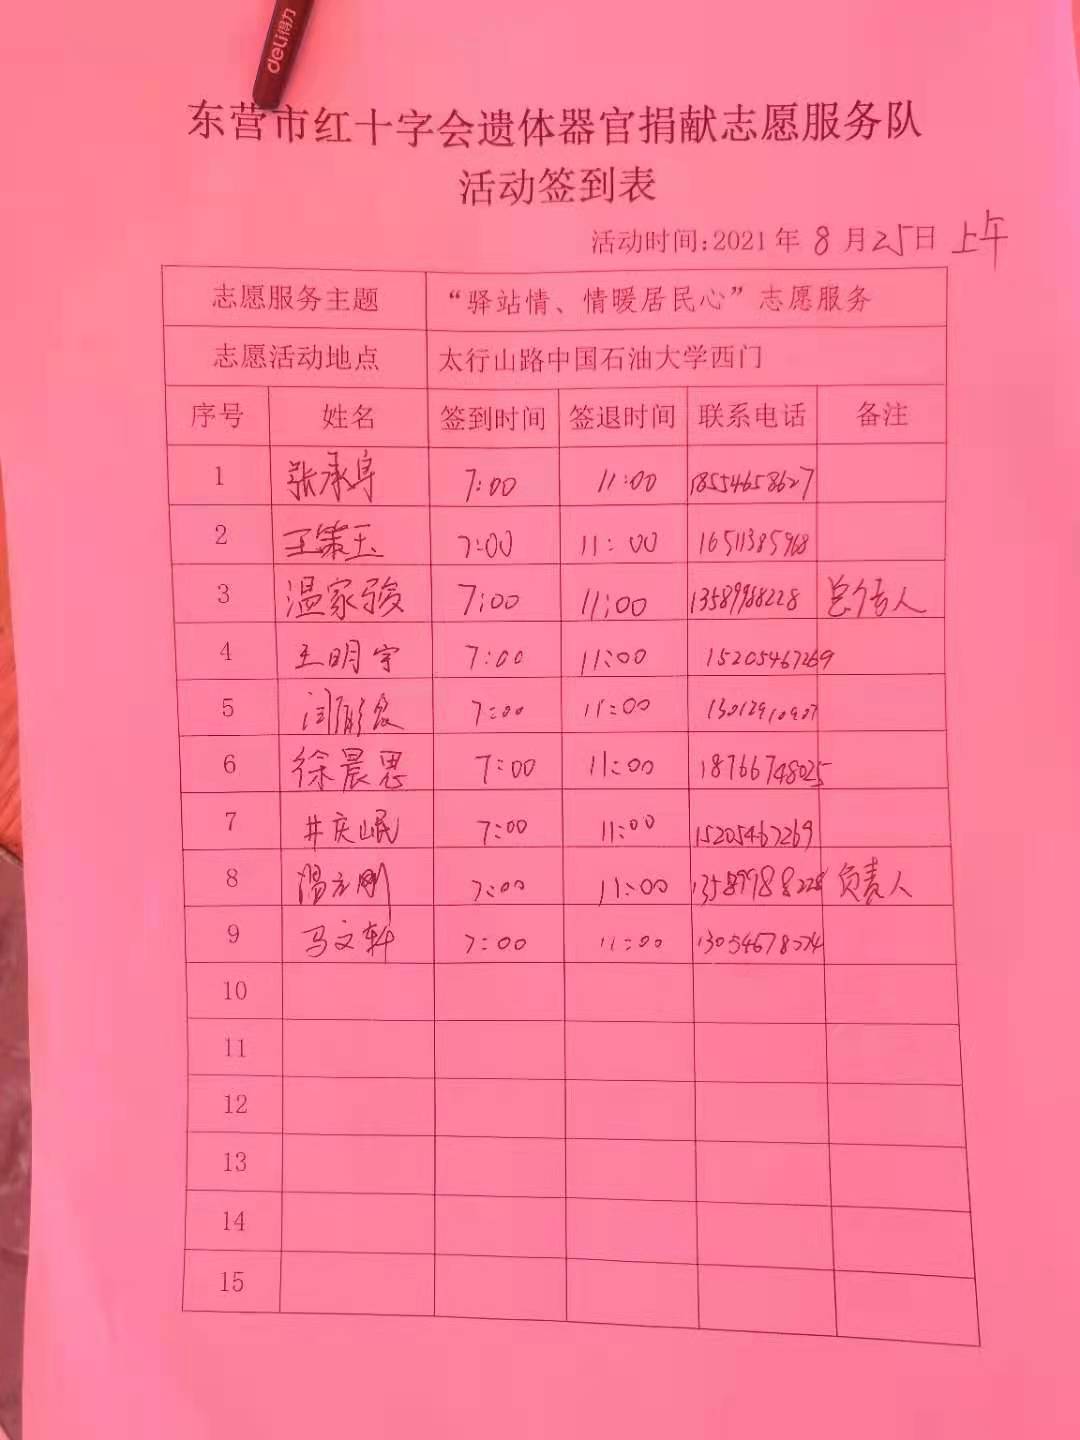 deli得力
东营市红十字会遗体器官捐献志愿服务队
活动签到表
活动时间:2021年8月25日 上午
志愿服务主题 “驿站情、情暖居民心”志愿服务
志愿活动地点 太行山路中国石油大学西门
序号 姓名 签到时间 签退时间 联系电话 备注
1 张承 7:00 11:00 18554658627
2 王策玉 7:00 11:00 16511385968
3 温家骏 7:00 11:00 13589988228 人
4 王明宇 7:00 11:00 15205467269
5 闫 7:00 11:00
6 徐晨思 7:00 11:00 18766748025
7 井庆岷 7:00 11:00 15205467269
8 温 刚 7:00 11:00 13589988228 负责人
9 马文轩 7:00 11:00
10
11
12
13
14
15